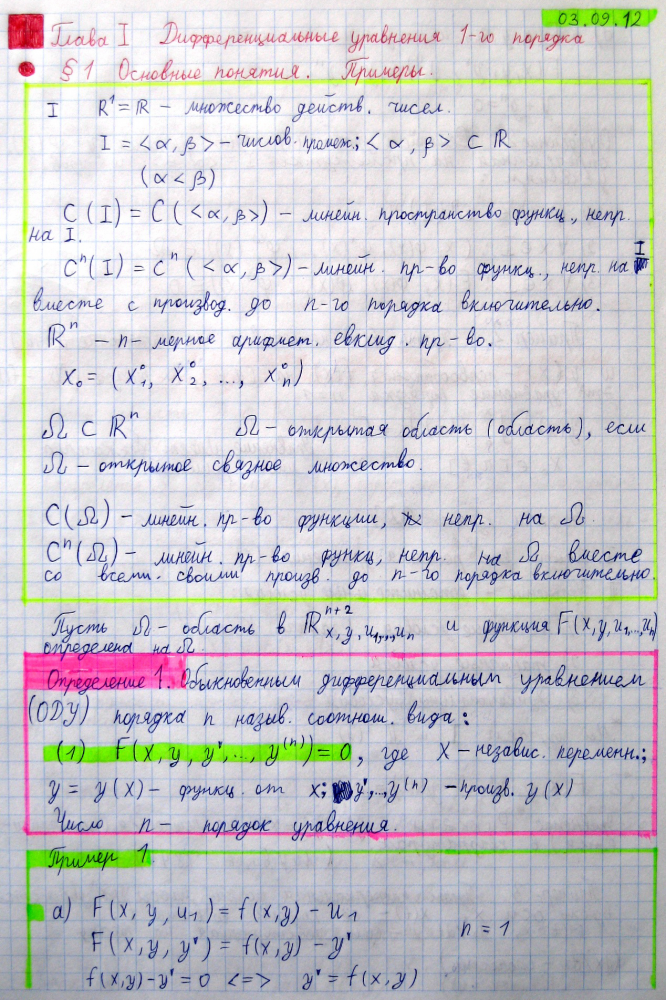 03.09.12
Глава I Дифференциальные уравнения 1-го порядка
§1 Основные понятия. Примеры.
I R¹ = ℝ – множество действ. чисел.
I = <α, β> – числов. промеж.; <α, β> ⊂ ℝ
(α < β)
C(I) = C(<α, β>) – линейн. пространство функц., непр.
на I.
Cⁿ(I) = Cⁿ(<α, β>) – линейн. пр-во функц., непр. на I
вместе с производ. до n-го порядка включительно.
ℝⁿ – n-мерное арифмет. евклид. пр-во.
x₀ = (x₁⁰, x₂⁰, ..., xₙ⁰)
Ω ⊂ ℝⁿ Ω – открытая область (область), если
Ω – открытое связное множество.
C(Ω) – линейн. пр-во функции, непр. на Ω.
Cⁿ(Ω) – линейн. пр-во функц, непр. на Ω вместе
со всеми своими произв. до n-го порядка включительно.
Пусть Ω – область в ℝⁿ⁺² x, y, u₁,..,uₙ и функция F(x, y, u₁,..,uₙ)
определена на Ω.
Определение 1. Обыкновенным дифференциальным уравнением
(ОДУ) порядка n назыв. соотнош. вида:
(1) F(x, y, y', ..., y⁽ⁿ⁾) = 0, где x – независ. переменн.;
y = y(x) – функц. от x; y',..,y⁽ⁿ⁾ – произв. y(x)
Число n – порядок уравнения.
Пример 1.
а) F(x, y, u₁) = f(x,y) – u₁
F(x, y, y') = f(x,y) – y' n = 1
f(x,y) – y' = 0 <=> y' = f(x, y)